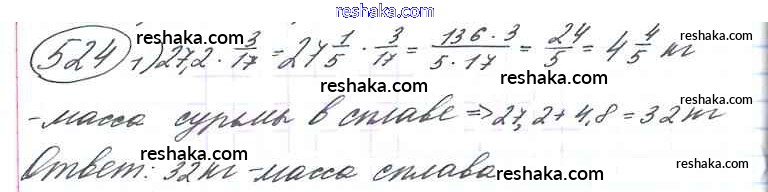 reshaka.com
524 1) 27,2 · 3/17 = 27 1/5 · 3/17 = 136 · 3 / 5 · 17 = 24/5 = 4 4/5 кг
reshaka.com reshaka.com reshaka.com
- масса сурьмы в сплаве => 27,2 + 4,8 = 32 кг
reshaka.com reshaka.com reshaka.com
Ответ: 32 кг - масса сплава
reshaka.com